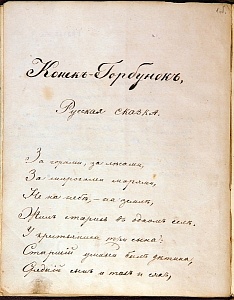 Конекъ-Горбунокъ,
Русская сказка.
За горами, за лѣсами,
За широкими морями,
Не на небѣ, на землѣ,
Жилъ старикъ въ одномъ селѣ.
У крестьянина три сына:
Старшій умный былъ дѣтина,
Средній сынъ и такъ и сякъ,